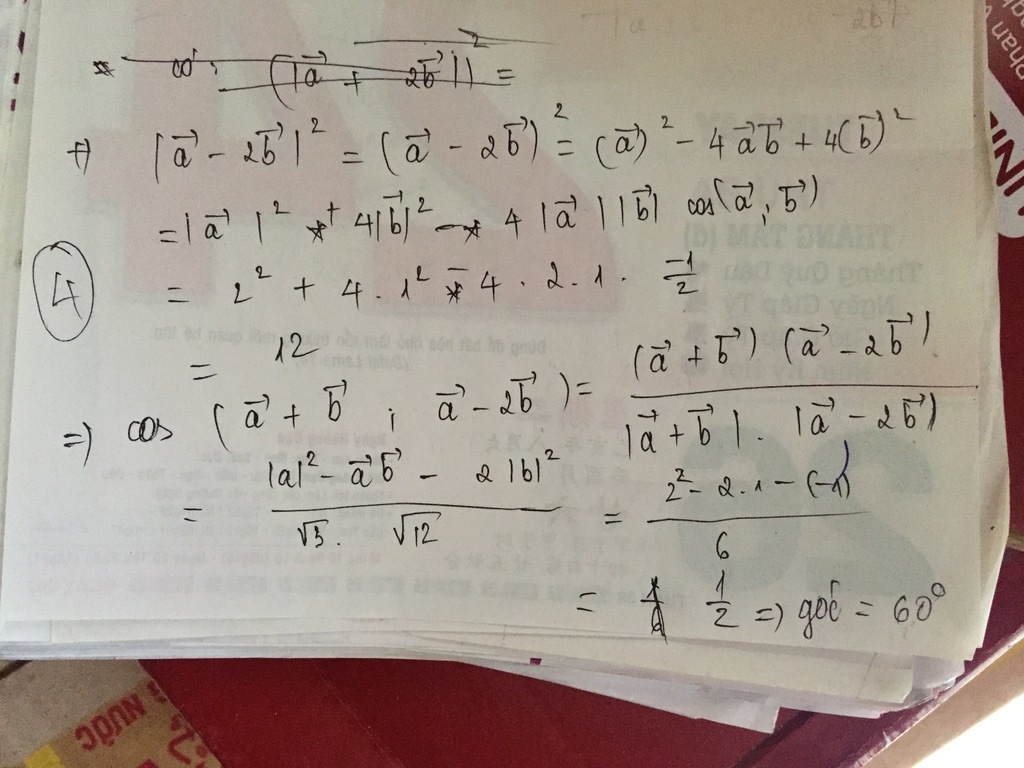 * có: (|a⃗ + 2b⃗|)² =
+) |a⃗ - 2b⃗|² = (a⃗ - 2b⃗)² = (a⃗)² - 4a⃗b⃗ + 4(b⃗)²
= |a⃗|² + 4|b⃗|² - 4 |a⃗| |b⃗| cos(a⃗; b⃗)
④
= 2² + 4.1² - 4 . 2 . 1 . -1/2
= 12
=> cos (a⃗ + b⃗ ; a⃗ - 2b⃗) = (a⃗ + b⃗) (a⃗ - 2b⃗) / |a⃗ + b⃗| . |a⃗ - 2b⃗|
= |a|² - a⃗b⃗ - 2|b|² / √3 . √12 = 2² - 2.1 - (-1) / 6
= 1/2 => góc = 60°
NƯỚC